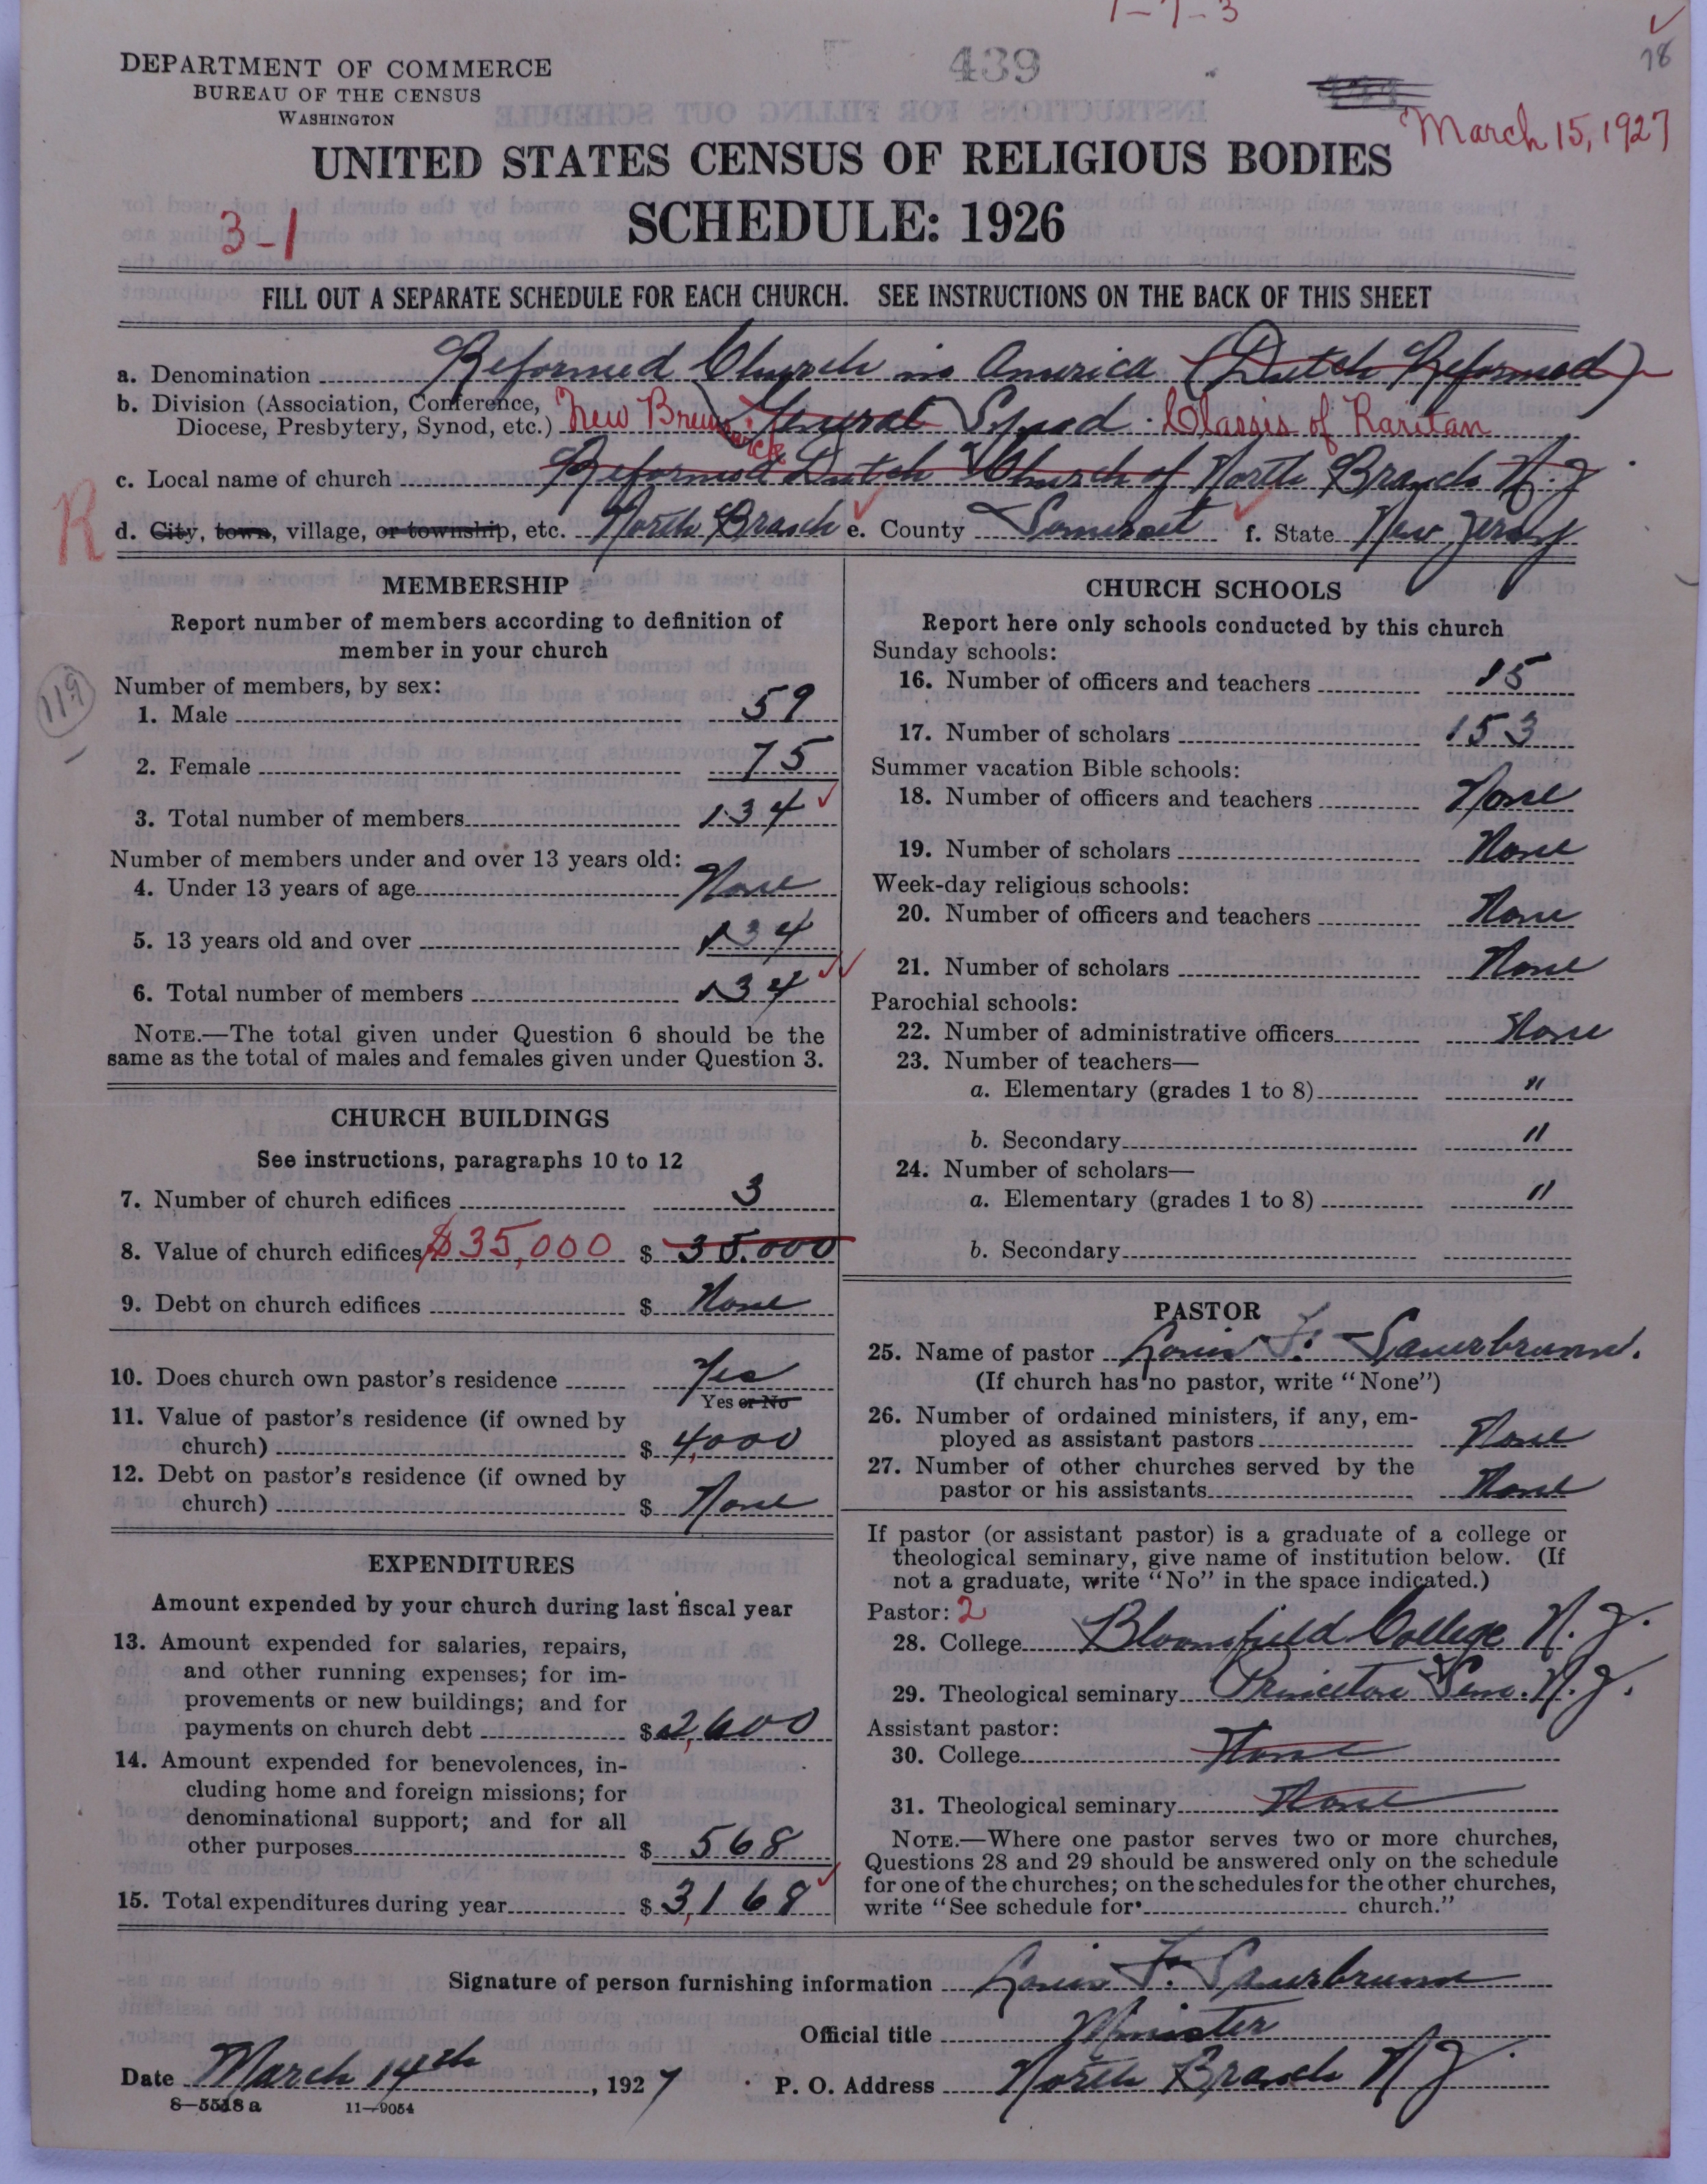 1-7-3
DEPARTMENT OF COMMERCE
BUREAU OF THE CENSUS
WASHINGTON
439
18
March 15, 1927
UNITED STATES CENSUS OF RELIGIOUS BODIES
SCHEDULE: 1926
3-1
FILL OUT A SEPARATE SCHEDULE FOR EACH CHURCH. SEE INSTRUCTIONS ON THE BACK OF THIS SHEET
a. Denomination Reformed Church in America (Dutch Reformed)
b. Division (Association, Conference, Diocese, Presbytery, Synod, etc.) New Brunswick General Synod. Classis of Raritan
c. Local name of church Reformed Dutch Church of North Branch N.J.
R
d. City, town, village, or township, etc. North Branch e. County Somerset f. State New Jersey
MEMBERSHIP
Report number of members according to definition of
member in your church
119
Number of members, by sex:
1. Male 59
2. Female 75
3. Total number of members 134
Number of members under and over 13 years old:
4. Under 13 years of age None
5. 13 years old and over 134
6. Total number of members 134
NOTE.—The total given under Question 6 should be the
same as the total of males and females given under Question 3.
CHURCH BUILDINGS
See instructions, paragraphs 10 to 12
7. Number of church edifices 3
8. Value of church edifices $35,000 $ 35.000
9. Debt on church edifices $ None
10. Does church own pastor's residence Yes
Yes or No
11. Value of pastor's residence (if owned by
church) $ 4,000
12. Debt on pastor's residence (if owned by
church) $ None
EXPENDITURES
Amount expended by your church during last fiscal year
13. Amount expended for salaries, repairs,
and other running expenses; for im-
provements or new buildings; and for
payments on church debt $ 2,600
14. Amount expended for benevolences, in-
cluding home and foreign missions; for
denominational support; and for all
other purposes $ 568
15. Total expenditures during year $ 3,168
CHURCH SCHOOLS
Report here only schools conducted by this church
Sunday schools:
16. Number of officers and teachers 15
17. Number of scholars 153
Summer vacation Bible schools:
18. Number of officers and teachers None
19. Number of scholars None
Week-day religious schools:
20. Number of officers and teachers None
21. Number of scholars None
Parochial schools:
22. Number of administrative officers None
23. Number of teachers—
a. Elementary (grades 1 to 8) "
b. Secondary "
24. Number of scholars—
a. Elementary (grades 1 to 8) "
b. Secondary
PASTOR
25. Name of pastor Louis F. Sauerbrunn.
(If church has no pastor, write "None")
26. Number of ordained ministers, if any, em-
ployed as assistant pastors None
27. Number of other churches served by the
pastor or his assistants None
If pastor (or assistant pastor) is a graduate of a college or
theological seminary, give name of institution below. (If
not a graduate, write "No" in the space indicated.)
Pastor: 2
28. College Bloomfield College N. J.
29. Theological seminary Princeton Sem. N. J.
Assistant pastor:
30. College None
31. Theological seminary None
NOTE.—Where one pastor serves two or more churches,
Questions 28 and 29 should be answered only on the schedule
for one of the churches; on the schedules for the other churches,
write "See schedule for church."
Signature of person furnishing information Louis F. Sauerbrunn
Official title Minister
Date March 14th, 1927 P. O. Address North Branch N J.
8-5518 a 11-9054